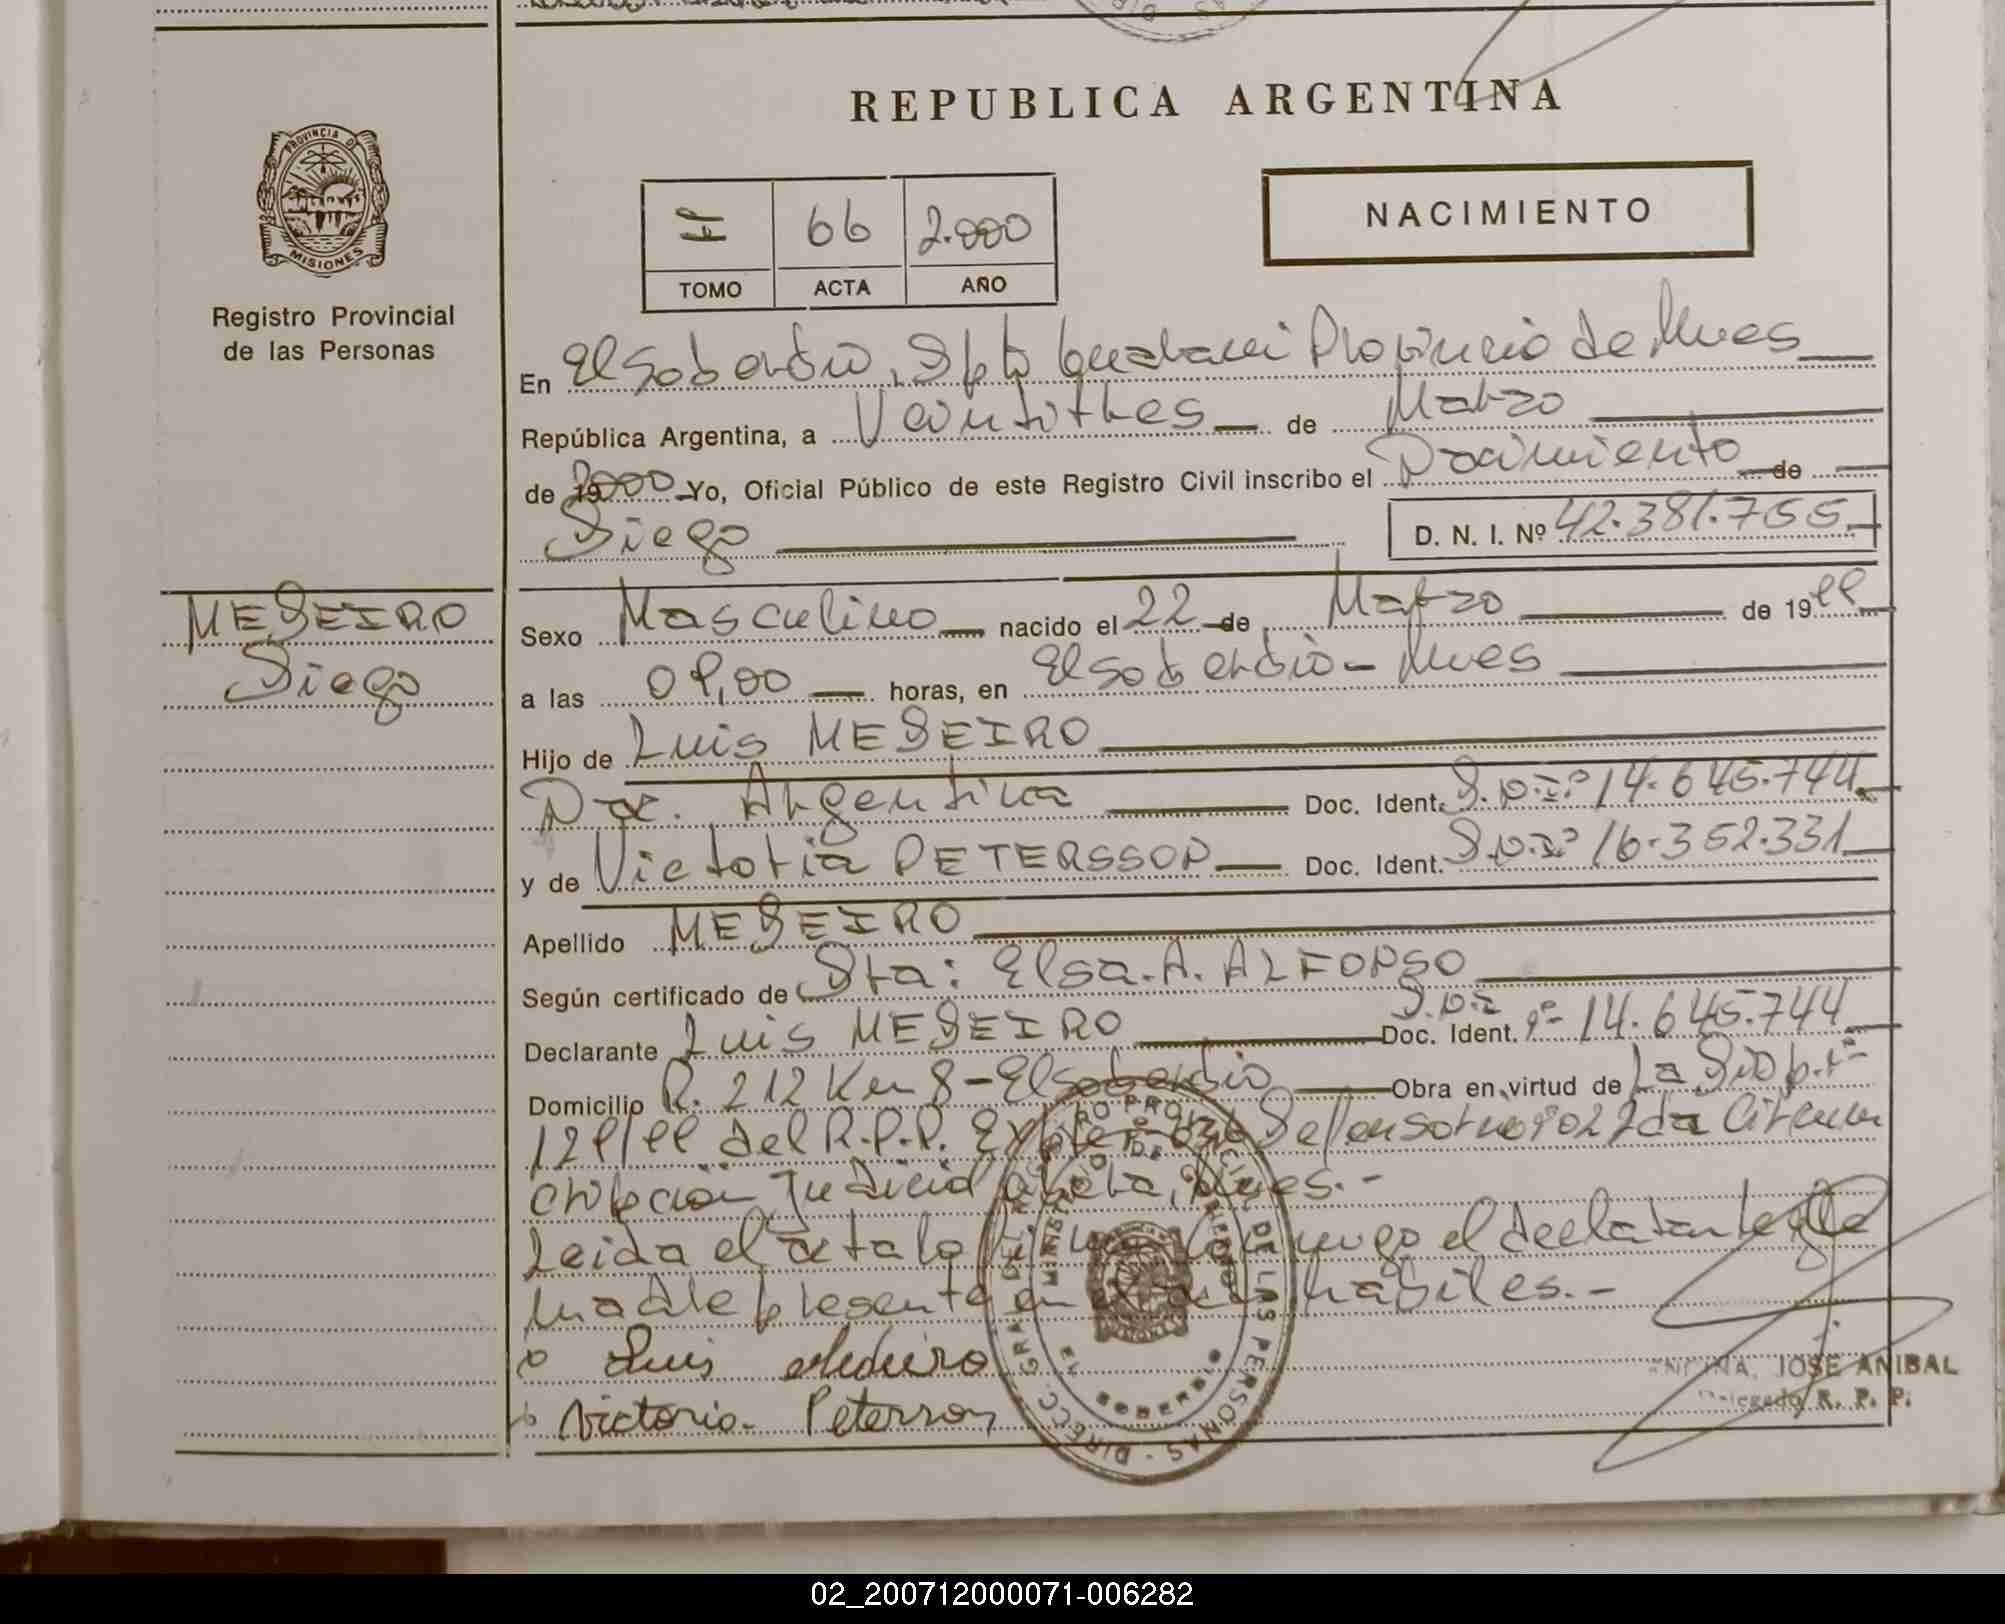 REPUBLICA ARGENTINA
PROVINCIA DE MISIONES
Registro Provincial
de las Personas
66 2.000
TOMO ACTA AÑO
NACIMIENTO
En El Soberbio, Dpto Guarani Provincia de Mnes
República Argentina, a Veintitres de Marzo
de 2000 Yo, Oficial Público de este Registro Civil inscribo el Nacimiento de
Diego D. N. I. Nº 42.381.755
MEDEIRO
Diego
Sexo Masculino nacido el 22 de Marzo de 1999
a las 09,00 horas, en El Soberbio - Mnes
Hijo de Luis MEDEIRO
Nac. Argentina Doc. Ident. D.N.I.º 14.645.744
y de Victoria PETERSSON Doc. Ident. D.N.Iº 16.352.331
Apellido MEDEIRO
Según certificado de Sta: Elsa. A. ALFONSO
Declarante Luis MEDEIRO Doc. Ident. D.N.I nº 14.645.744
Domicilio R. 212 Km 8 - El Soberbio Obra en virtud de La Disp. nº
129/99 del R.P.P. Defensor nº 2 2da Circuns
cripcion Judicial Mnes.-
Leida el acta la conmigo el declarante y la
madre presente en habiles.-
Luis Medeiro
Victoria Peterson
DIRECC. GRAL DEL REGISTRO PROVINCIAL DE LAS PERSONAS
MINISTERIO DE GOBIERNO
SOBERBIO
JOSE ANIBAL
Delegado R. P. P.
02_200712000071-006282